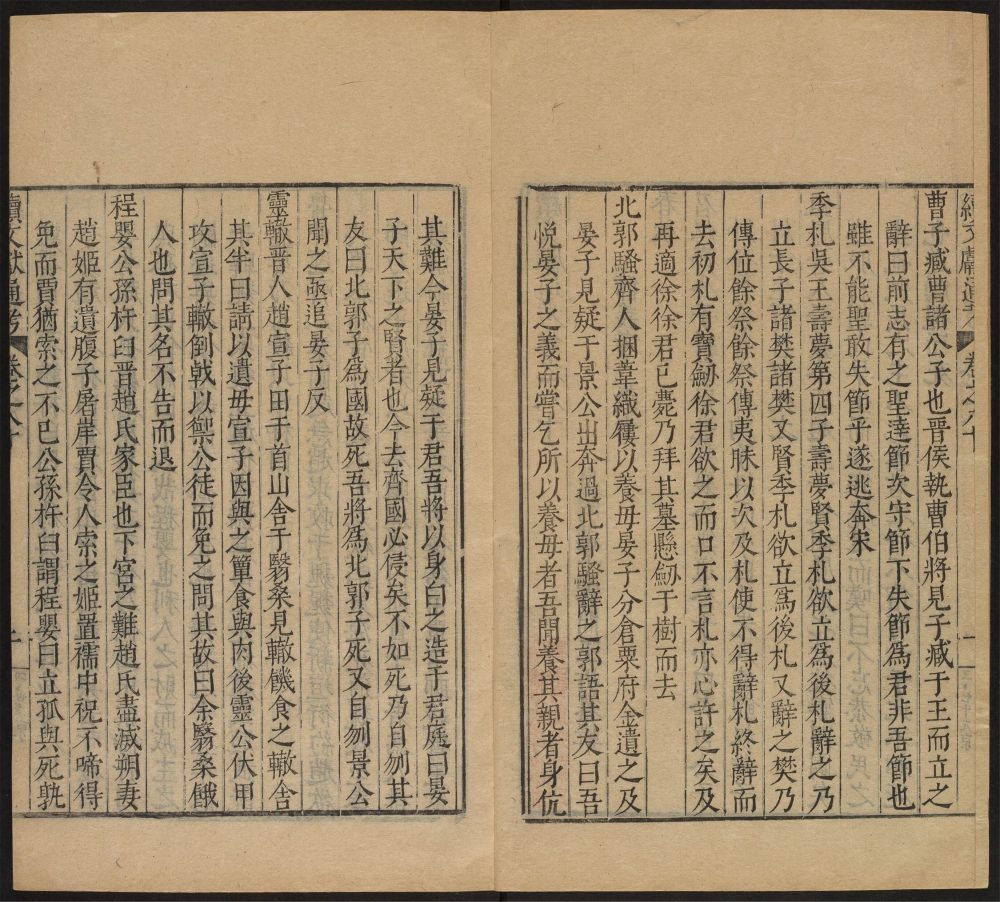 續文獻通考 卷之八十
曹子臧曹諸公子也晉侯執曹伯將見子臧于王而立之
辭曰前志有之聖達節次守節下失節爲君非吾節也
雖不能聖敢失節乎遂逃奔宋
季札吳王壽夢第四子壽夢賢季札欲立爲後札辭之乃
立長子諸樊諸樊又賢季札欲立爲後札又辭之樊乃
傳位餘祭餘祭傳夷眛以次及札使不得辭札終辭而
去初札有寶劒徐君欲之而口不言札亦心許之矣及
再適徐徐君已薨乃拜其墓懸劒于樹而去
北郭騷齊人捆葦織屨以養母晏子分倉粟府金遺之及
晏子見疑于景公出奔過北郭騷辭之郭語其友曰吾
悅晏子之義而嘗乞所以養母者吾聞養其親者身伉
其難今晏子見疑于君吾將以身白之造于君庭曰晏
子天下之賢者也今去齊國必侵矣不如死乃自刎其
友曰北郭子爲國故死吾將爲北郭子死又自刎景公
聞之亟追晏子反
靈轍晉人趙宣子田于首山舍于翳桑見轍饑食之轍舍
其半曰請以遺母宣子因與之簞食與肉後靈公伏甲
攻宣子轍倒戟以禦公徒而免之問其故曰余翳桑餓
人也問其名不告而退
程嬰公孫杵臼晉趙氏家臣也下宮之難趙氏盡滅朔妻
趙姬有遺腹子屠岸賈令人索之姬置襦中祝不啼得
免而賈猶索之不已公孫杵臼謂程嬰曰立孤與死孰
續文獻通考 卷之八十